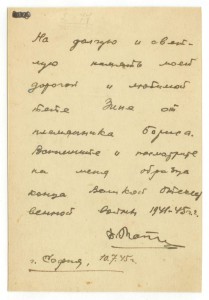 На долгую и свет-
лую память моей
дорогой и любимой
тете Зине от
племянника Бориса.
Вспомните и посмотрите
на меня образца
конца Великой Отечест
венной войны 1941-45 г.г.
г. София, 10.7.45 г.